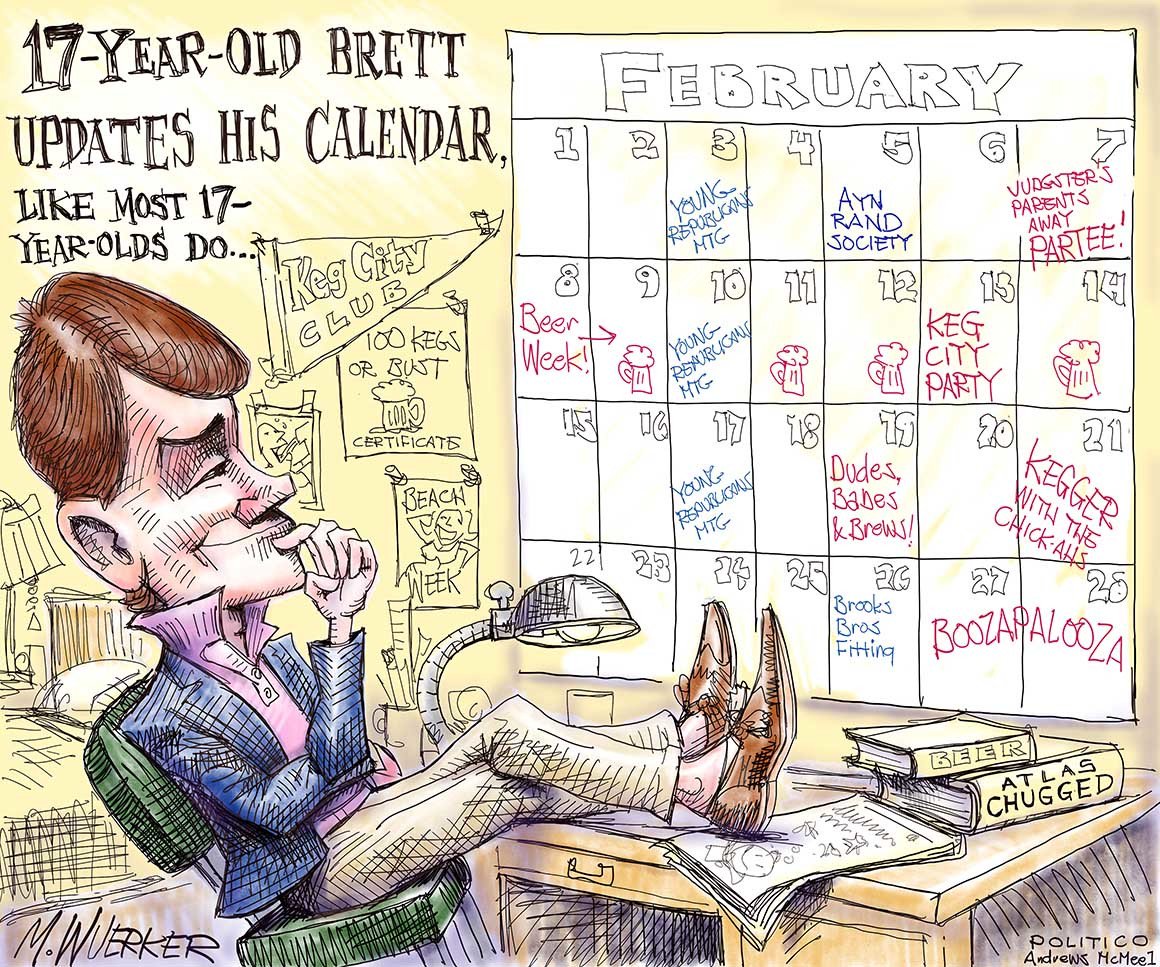 17-YEAR-OLD BRETT
UPDATES HIS CALENDAR,
LIKE MOST 17-
YEAR-OLDS DO...
Keg City
CLUB
100 KEGS
OR BUST
CERTIFICATE
BEACH
WEEK
FEBRUARY
1 2 3 4 5 6 7
YOUNG
REPUBLICANS
MTG
AYN
RAND
SOCIETY
JUDGSTER'S
PARENTS
AWAY
PARTEE!
8 9 10 11 12 13 14
Beer
Week!
YOUNG
REPUBLICANS
MTG
KEG
CITY
PARTY
15 16 17 18 19 20 21
YOUNG
REPUBLICANS
MTG
Dudes,
Babes
& Brews!
KEGGER
WITH THE
CHICK-AHS
22 23 24 25 26 27 28
Brooks
Bros
Fitting
BOOZAPALOOZA
BEER
ATLAS
CHUGGED
M. WUERKER
POLITICO
Andrews McMeel